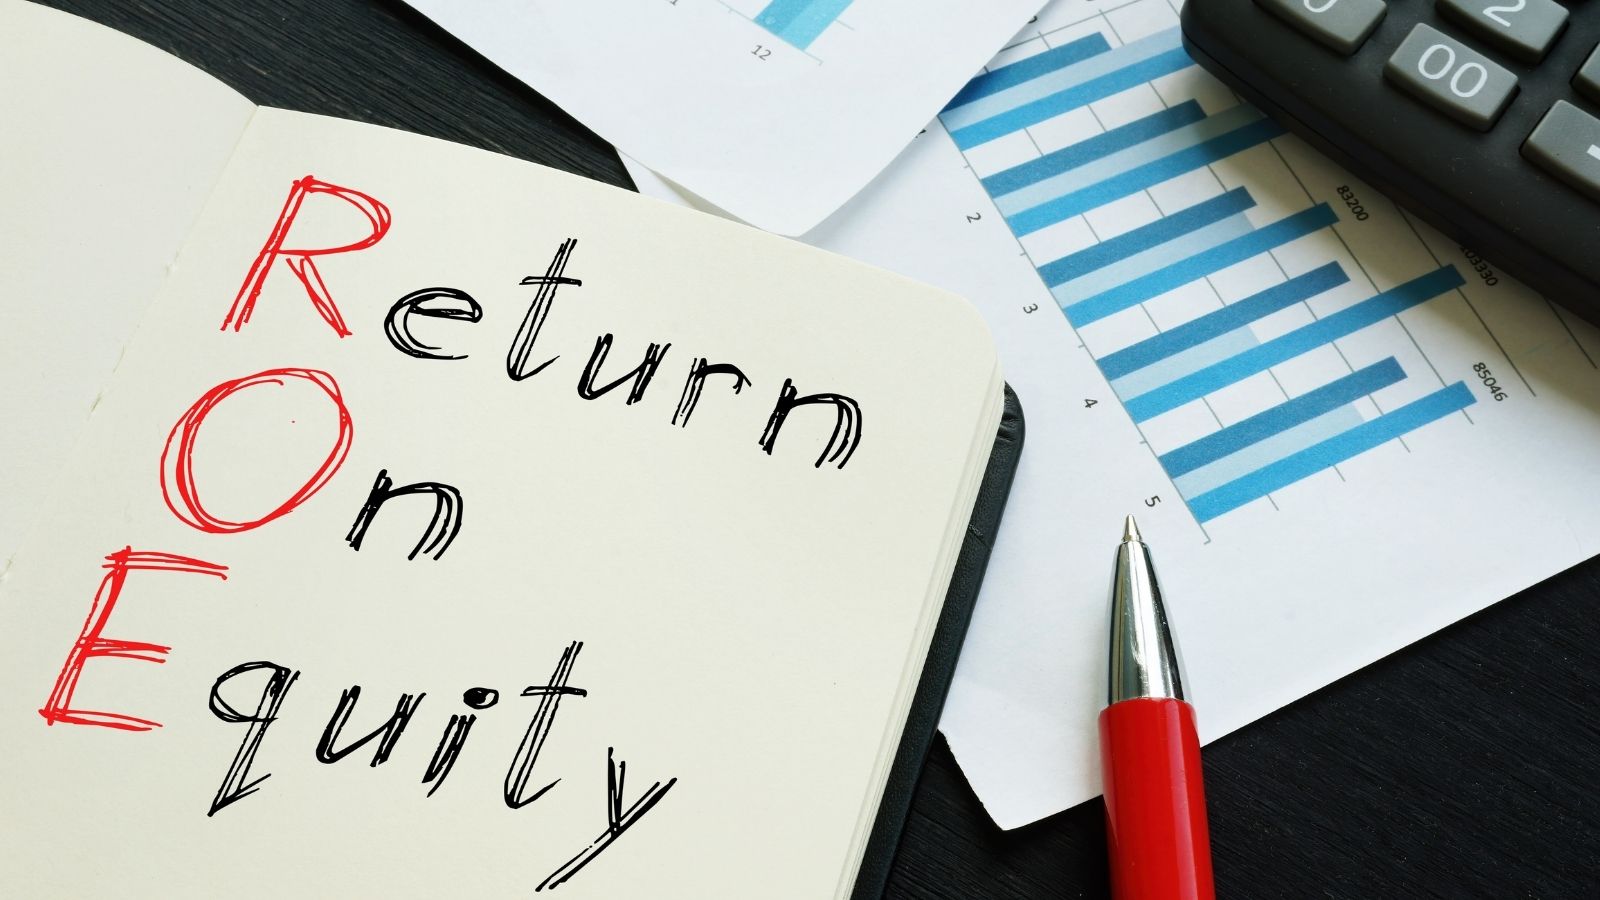 Return
On
Equity
12
2
3
4
5
83200
103330
85046
00
2